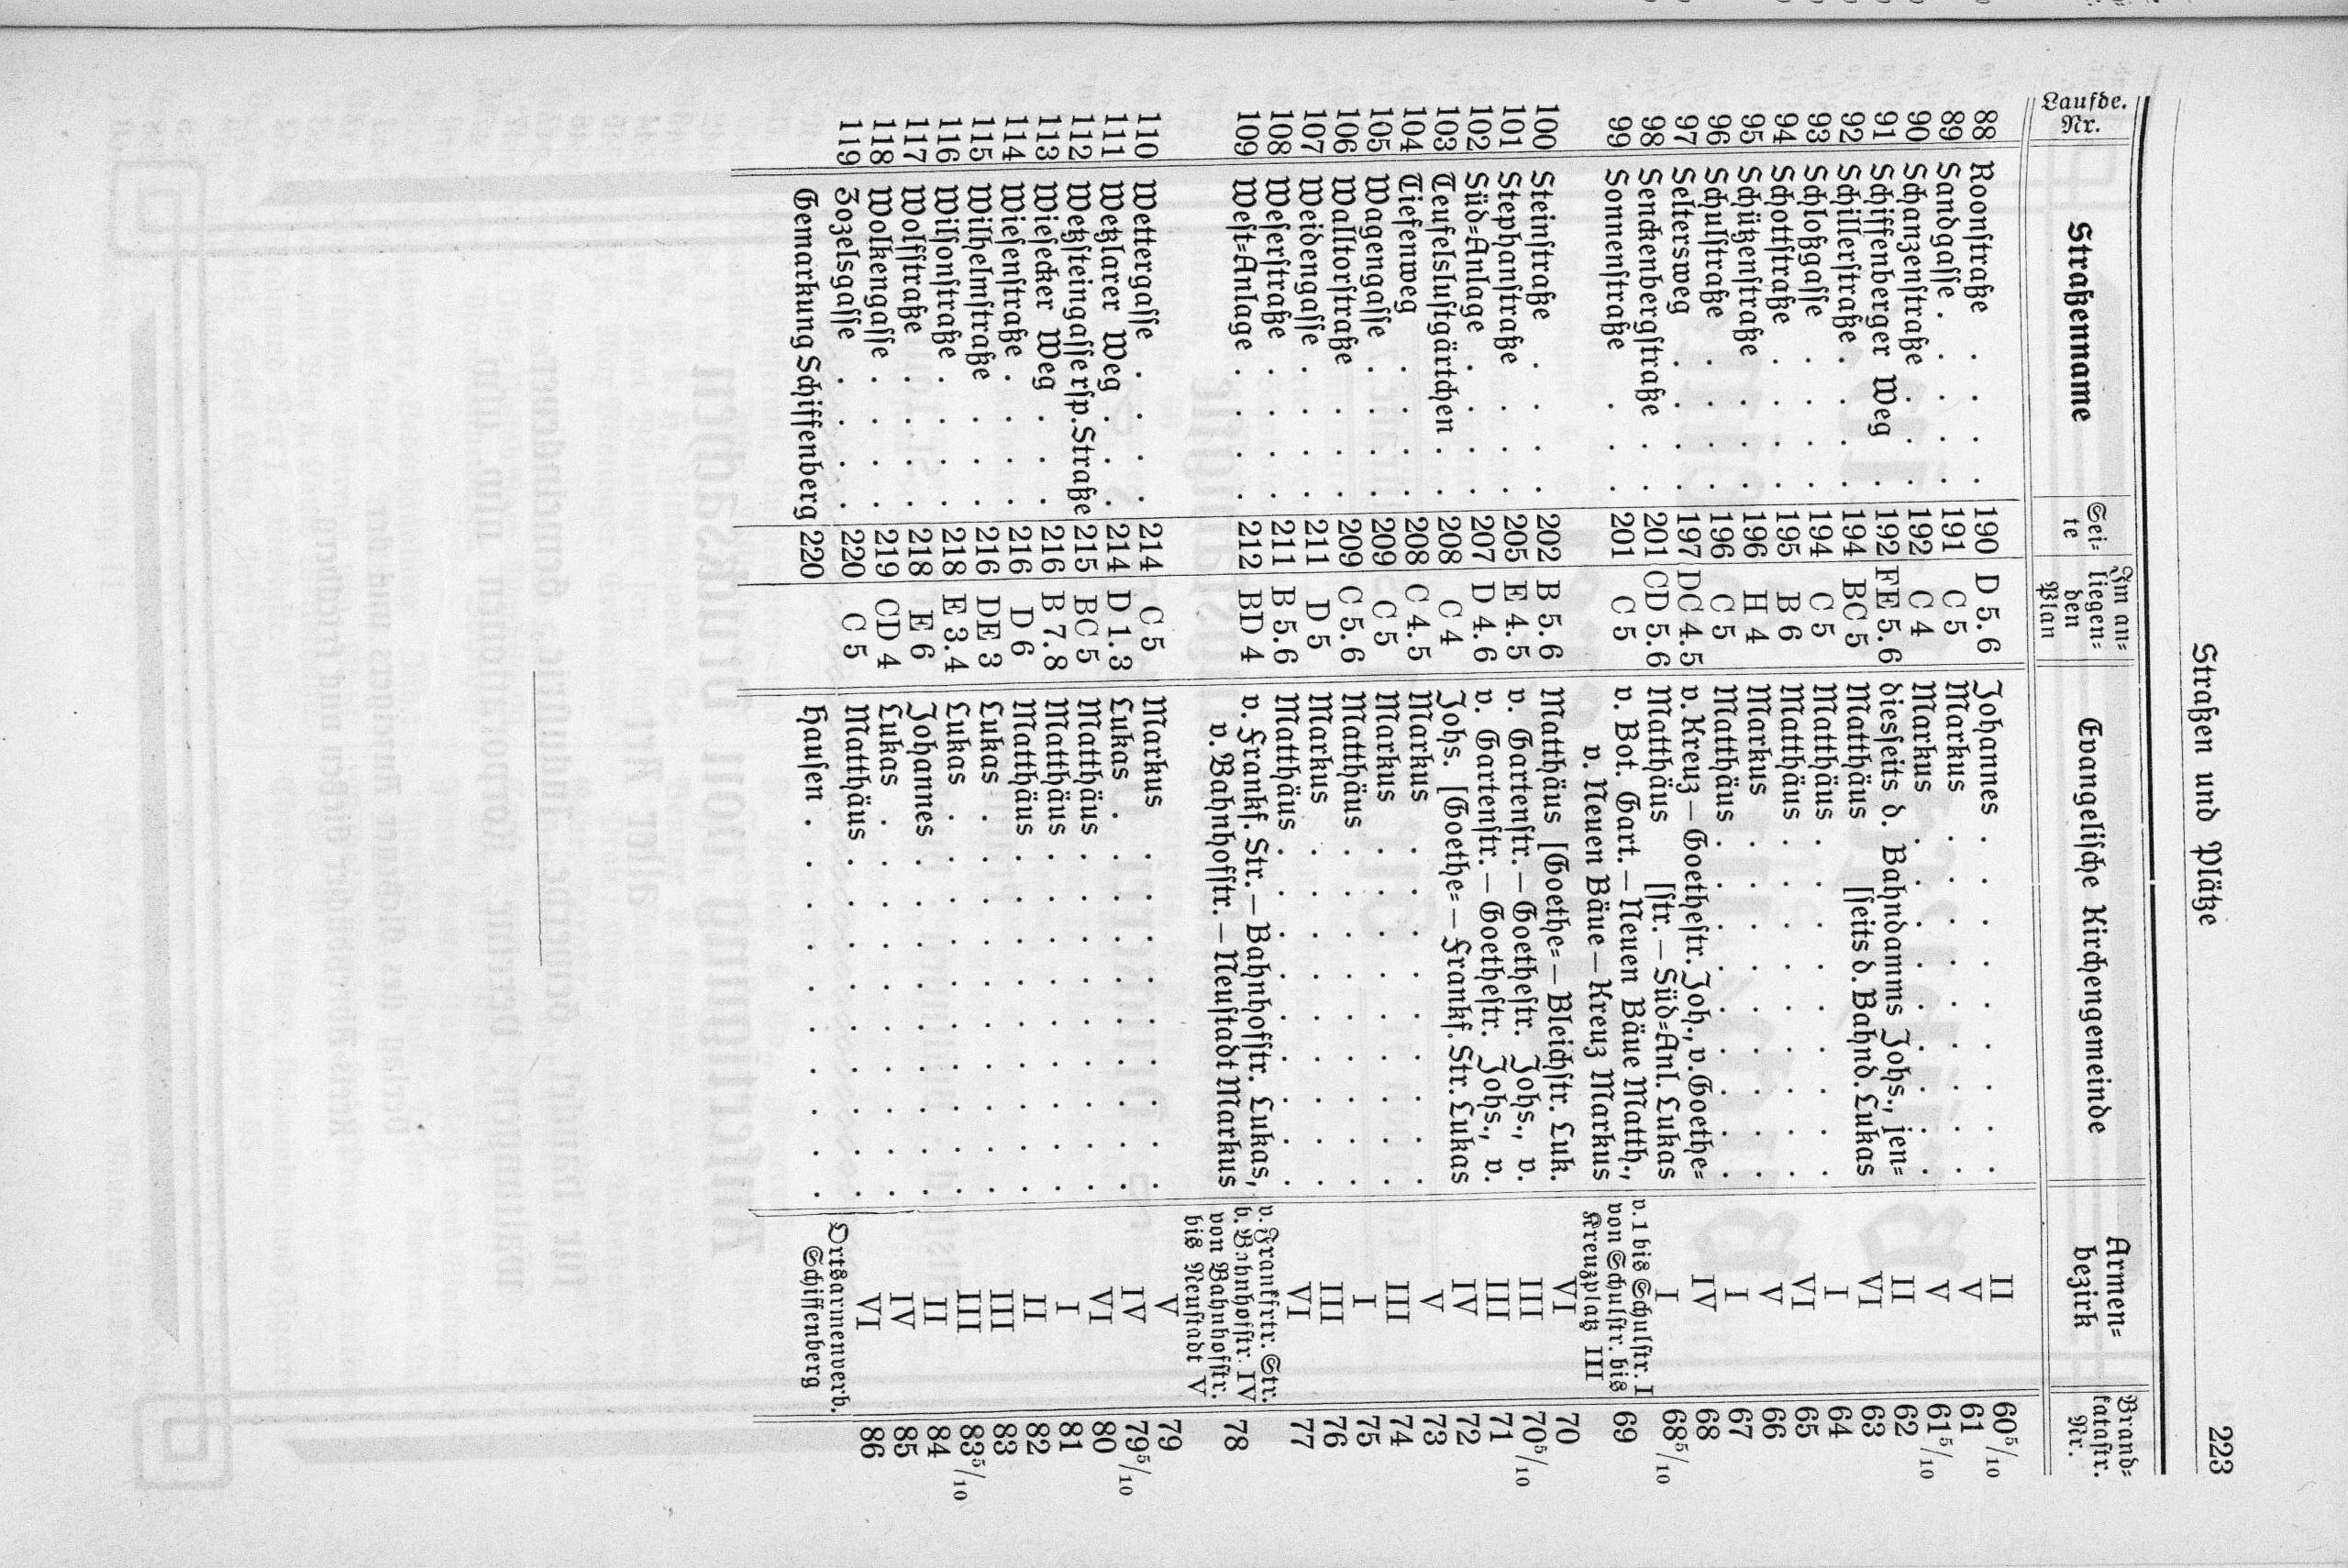 Straßen und Plätze 223
Laufde. Nr. Straßenname Sei= te Im an= liegen= den Plan Evangelische Kirchengemeinde Armen= bezirk Brand= katastr. Nr.
88 Roonstraße . . . . 190 D 5.6 Johannes . . . . . . . . . II 60⁵/₁₀
89 Sandgasse . . . . 191 C 5 Markus . . . . . . . . . V 61
90 Schanzenstraße . . . 192 C 4 Markus . . . . . . . . . V 61⁵/₁₀
91 Schiffenberger Weg . 192 FE 5.6 diesseits d. Bahndamms Johs., jen= II 62
92 Schillerstraße . . . 194 BC 5 Matthäus [seits d. Bahnd. Lukas VI 63
93 Schloßgasse . . . . 194 C 5 Matthäus . . . . . . . . . I 64
94 Schottstraße . . . . 195 B 6 Matthäus . . . . . . . . . VI 65
95 Schützenstraße . . . 196 H 4 Markus . . . . . . . . . V 66
96 Schulstraße . . . . 196 C 5 Matthäus . . . . . . . . . I 67
97 Seltersweg . . . . 197 DC 4.5 v. Kreuz — Goethestr. Joh., v. Goethe= IV 68
98 Senckenbergstraße . . 201 CD 5.6 Matthäus [str. — Süd=Anl. Lukas I 68⁵/₁₀
99 Sonnenstraße . . . 201 C 5 v. Bot. Gart. — Neuen Bäue Matth., v. 1 bis Schulstr. I
v. Neuen Bäue — Kreuz Markus von Schulstr. bis Kreuzplatz III 69
100 Steinstraße . . . . 202 B 5.6 Matthäus [Goethe= — Bleichstr. Luk. VI 70
101 Stephanstraße . . . 205 E 4.5 v. Gartenstr. — Goethestr. Johs., v. III 70⁵/₁₀
102 Süd=Anlage . . . . 207 D 4.6 v. Gartenstr. — Goethestr. Johs., v. III 71
103 Teufelslustgärtchen . 208 C 4 Johs. [Goethe= — Frankf. Str. Lukas IV 72
104 Tiefenweg . . . . 208 C 4.5 Markus . . . . . . . . . V 73
105 Wagengasse . . . . 209 C 5 Markus . . . . . . . . . III 74
106 Walltorstraße . . . 209 C 5.6 Matthäus . . . . . . . . . I 75
107 Weidengasse . . . . 211 D 5 Markus . . . . . . . . . III 76
108 Weserstraße . . . . 211 B 5.6 Matthäus . . . . . . . . . VI 77
109 West=Anlage . . . . 212 BD 4 v. Frankf. Str. — Bahnhofstr. Lukas, v. Frankfrtr. Str. b. Bahnhofstr. IV
v. Bahnhofstr. — Neustadt Markus von Bahnhofstr. bis Neustadt V 78
110 Wettergasse . . . . 214 C 5 Markus . . . . . . . . . V 79
111 Wetzlarer Weg . . . 214 D 1.3 Lukas . . . . . . . . . IV 79⁵/₁₀
112 Wetzsteingasse rsp. Straße 215 BC 5 Matthäus . . . . . . . . . VI 80
113 Wiesecker Weg . . . 216 B 7.8 Matthäus . . . . . . . . . I 81
114 Wiesenstraße . . . . 216 D 6 Matthäus . . . . . . . . . II 82
115 Wilhelmstraße . . . 216 DE 3 Lukas . . . . . . . . . III 83
116 Wilsonstraße . . . . 218 E 3.4 Lukas . . . . . . . . . III 83⁵/₁₀
117 Wolfstraße . . . . 218 E 6 Johannes . . . . . . . . . II 84
118 Wolkengasse . . . . 219 CD 4 Lukas . . . . . . . . . IV 85
119 Zozelsgasse . . . . 220 C 5 Matthäus . . . . . . . . . VI 86
Gemarkung Schiffenberg 220 Hausen . . . . . . . . . Ortsarmenverb. Schiffenberg